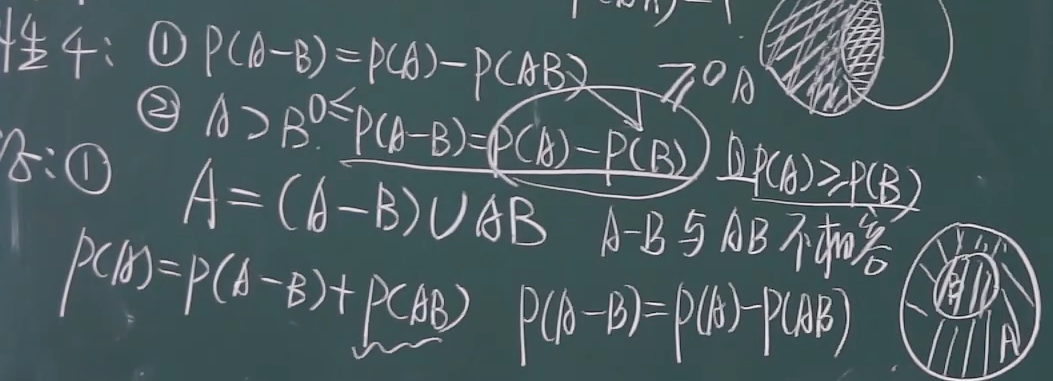 性4: ① P(A-B)=P(A)-P(AB)
② A⊃B 0≤P(A-B)=P(A)-P(B) ≥0 且P(A)≥P(B)
A
①
A=(A-B)∪AB A-B与AB不相容
P(A)=P(A-B)+P(AB) P(A-B)=P(A)-P(AB)
B
A